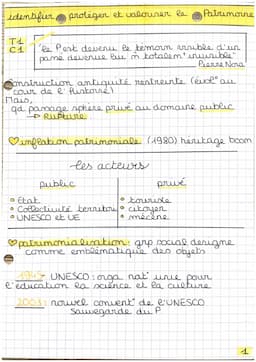 identifier, protéger et valoriser le Patrimoine
T1
C1
le P est devenu le témoin visible d'un
passé devenu lui m totalemt invisible
Pierre Nora
Construction antiquité restreinte (évolo au
cour de l'histoire)
Mais,
qd passage sphère privé au domaine public
→ Rupture
inflation patrimoniale (1980) héritage boom
les acteurs
public
privé
État
tourisme
Collectivité territori
citoyen
UNESCO et UE
mécène
patrimonialisation: grp social designe
comme emblématique des objets
1945 UNESCO: orga nat° unie pour
l'éducation la science et la culture
2003: nouvel convent° de l'UNESCO
Sauvegarde du P
1